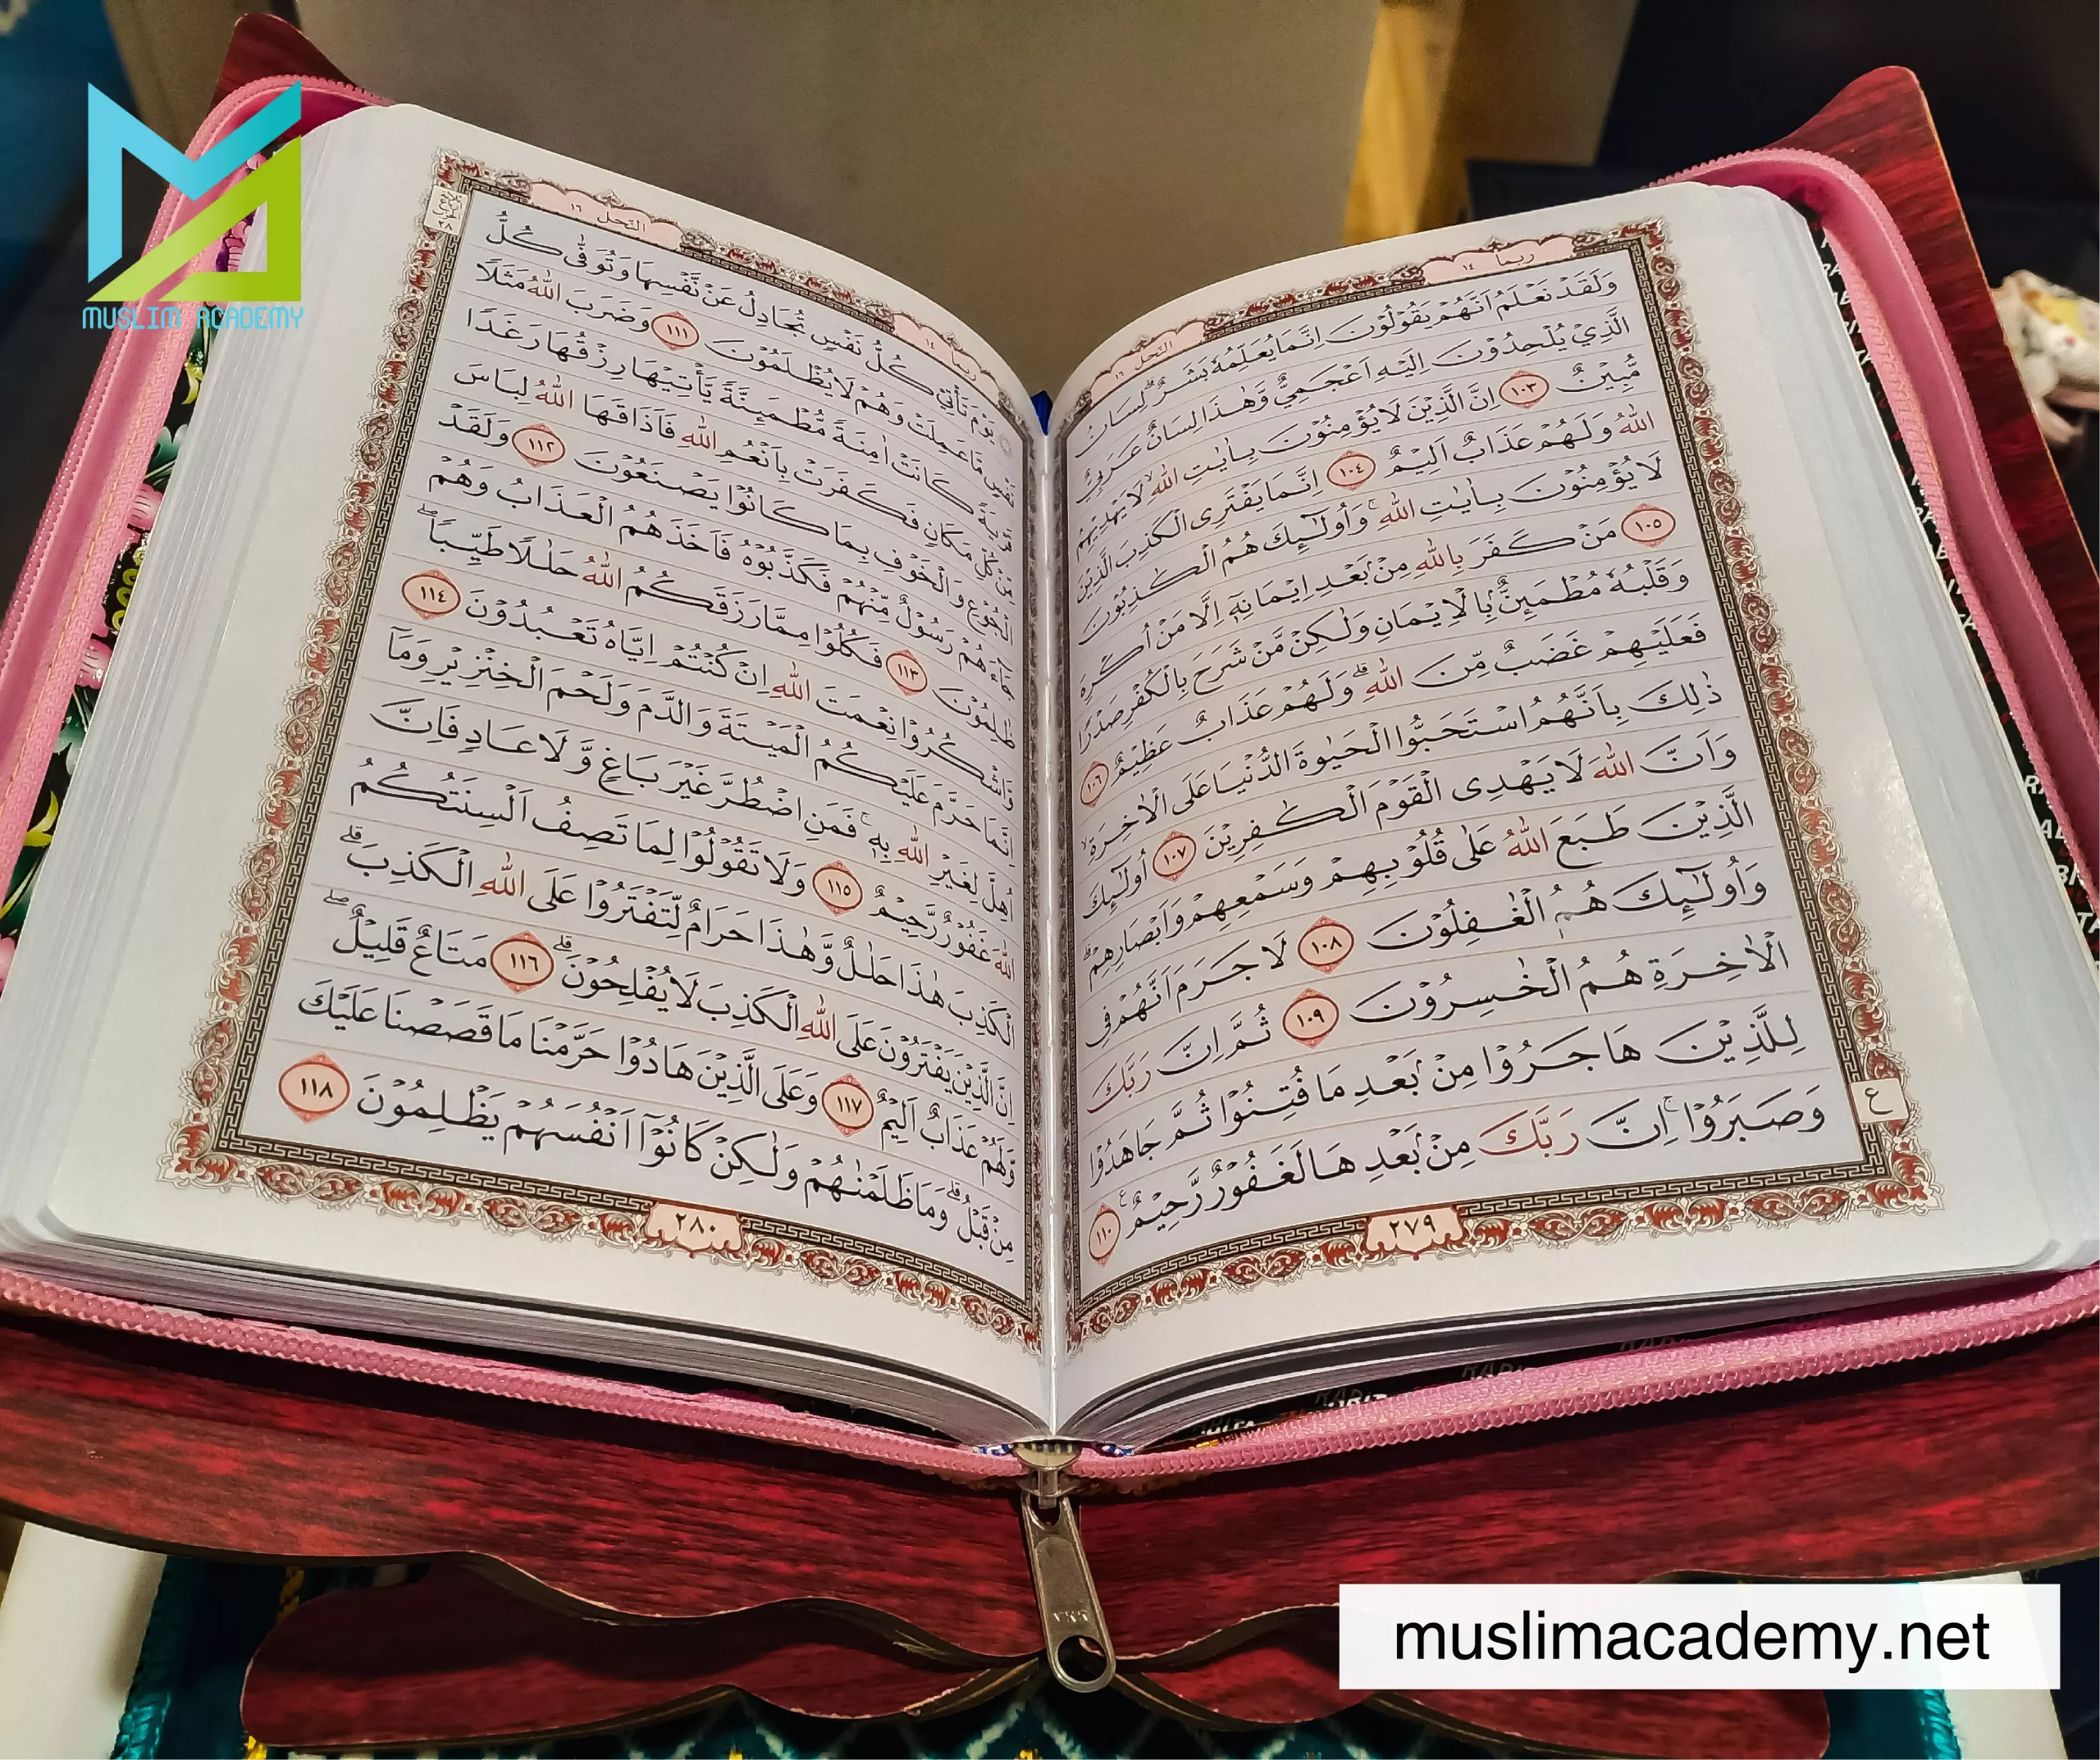 MUSLIM ACADEMY
ربما ١٤
النحل ١٦
وَلَقَدْ نَعْلَمُ اَنَّهُمْ يَقُوْلُوْنَ اِنَّمَا يُعَلِّمُهٗ بَشَرٌۗ لِسَانُ
الَّذِيْ يُلْحِدُوْنَ اِلَيْهِ اَعْجَمِيٌّ وَّهٰذَا لِسَانٌ عَرَبِيٌّ
مُّبِيْنٌ ١٠٣ اِنَّ الَّذِيْنَ لَا يُؤْمِنُوْنَ بِاٰيٰتِ اللّٰهِ ۙ لَا يَهْدِيْهِمُ
اللّٰهُ وَلَهُمْ عَذَابٌ اَلِيْمٌ ١٠٤ اِنَّمَا يَفْتَرِى الْكَذِبَ الَّذِيْنَ
لَا يُؤْمِنُوْنَ بِاٰيٰتِ اللّٰهِ ۚ وَاُولٰۤىِٕكَ هُمُ الْكٰذِبُوْنَ
١٠٥ مَنْ كَفَرَ بِاللّٰهِ مِنْۢ بَعْدِ اِيْمَانِهٖٓ اِلَّا مَنْ اُكْرِهَ
وَقَلْبُهٗ مُطْمَىِٕنٌّۢ بِالْاِيْمَانِ وَلٰكِنْ مَّنْ شَرَحَ بِالْكُفْرِ صَدْرًا
فَعَلَيْهِمْ غَضَبٌ مِّنَ اللّٰهِ ۗ وَلَهُمْ عَذَابٌ عَظِيْمٌ ١٠٦
ذٰلِكَ بِاَنَّهُمُ اسْتَحَبُّوا الْحَيٰوةَ الدُّنْيَا عَلَى الْاٰخِرَةِ ۙ
وَاَنَّ اللّٰهَ لَا يَهْدِى الْقَوْمَ الْكٰفِرِيْنَ ١٠٧ اُولٰۤىِٕكَ
الَّذِيْنَ طَبَعَ اللّٰهُ عَلٰى قُلُوْبِهِمْ وَسَمْعِهِمْ وَاَبْصَارِهِمْ ۗ
وَاُولٰۤىِٕكَ هُمُ الْغٰفِلُوْنَ ١٠٨ لَا جَرَمَ اَنَّهُمْ فِى
الْاٰخِرَةِ هُمُ الْخٰسِرُوْنَ ١٠٩ ثُمَّ اِنَّ رَبَّكَ
لِلَّذِيْنَ هَاجَرُوْا مِنْۢ بَعْدِ مَا فُتِنُوْا ثُمَّ جَاهَدُوْا
وَصَبَرُوْاۚ اِنَّ رَبَّكَ مِنْۢ بَعْدِهَا لَغَفُوْرٌ رَّحِيْمٌ ࣖ ١١٠
ع
٢٧٩
ربما ١٤
النحل ١٦
٢٨
يَوْمَ تَأْتِيْ كُلُّ نَفْسٍ تُجَادِلُ عَنْ نَّفْسِهَا وَتُوَفّٰى كُلُّ
نَفْسٍ مَّا عَمِلَتْ وَهُمْ لَا يُظْلَمُوْنَ ١١١ وَضَرَبَ اللّٰهُ مَثَلًا
قَرْيَةً كَانَتْ اٰمِنَةً مُّطْمَىِٕنَّةً يَّأْتِيْهَا رِزْقُهَا رَغَدًا
مِّنْ كُلِّ مَكَانٍ فَكَفَرَتْ بِاَنْعُمِ اللّٰهِ فَاَذَاقَهَا اللّٰهُ لِبَاسَ
الْجُوْعِ وَالْخَوْفِ بِمَا كَانُوْا يَصْنَعُوْنَ ١١٢ وَلَقَدْ
جَاۤءَهُمْ رَسُوْلٌ مِّنْهُمْ فَكَذَّبُوْهُ فَاَخَذَهُمُ الْعَذَابُ وَهُمْ
ظٰلِمُوْنَ ١١٣ فَكُلُوْا مِمَّا رَزَقَكُمُ اللّٰهُ حَلٰلًا طَيِّبًاۖ
وَّاشْكُرُوْا نِعْمَتَ اللّٰهِ اِنْ كُنْتُمْ اِيَّاهُ تَعْبُدُوْنَ ١١٤
اِنَّمَا حَرَّمَ عَلَيْكُمُ الْمَيْتَةَ وَالدَّمَ وَلَحْمَ الْخِنْزِيْرِ وَمَآ
اُهِلَّ لِغَيْرِ اللّٰهِ بِهٖۚ فَمَنِ اضْطُرَّ غَيْرَ بَاغٍ وَّلَا عَادٍ فَاِنَّ
اللّٰهَ غَفُوْرٌ رَّحِيْمٌ ١١٥ وَلَا تَقُوْلُوْا لِمَا تَصِفُ اَلْسِنَتُكُمُ
الْكَذِبَ هٰذَا حَلٰلٌ وَّهٰذَا حَرَامٌ لِّتَفْتَرُوْا عَلَى اللّٰهِ الْكَذِبَۗ
اِنَّ الَّذِيْنَ يَفْتَرُوْنَ عَلَى اللّٰهِ الْكَذِبَ لَا يُفْلِحُوْنَۗ ١١٦ مَتَاعٌ قَلِيْلٌۖ
وَّلَهُمْ عَذَابٌ اَلِيْمٌ ١١٧ وَعَلَى الَّذِيْنَ هَادُوْا حَرَّمْنَا مَا قَصَصْنَا عَلَيْكَ
مِنْ قَبْلُ ۗ وَمَا ظَلَمْنٰهُمْ وَلٰكِنْ كَانُوْٓا اَنْفُسَهُمْ يَظْلِمُوْنَ ١١٨
٢٨٠
muslimacademy.net